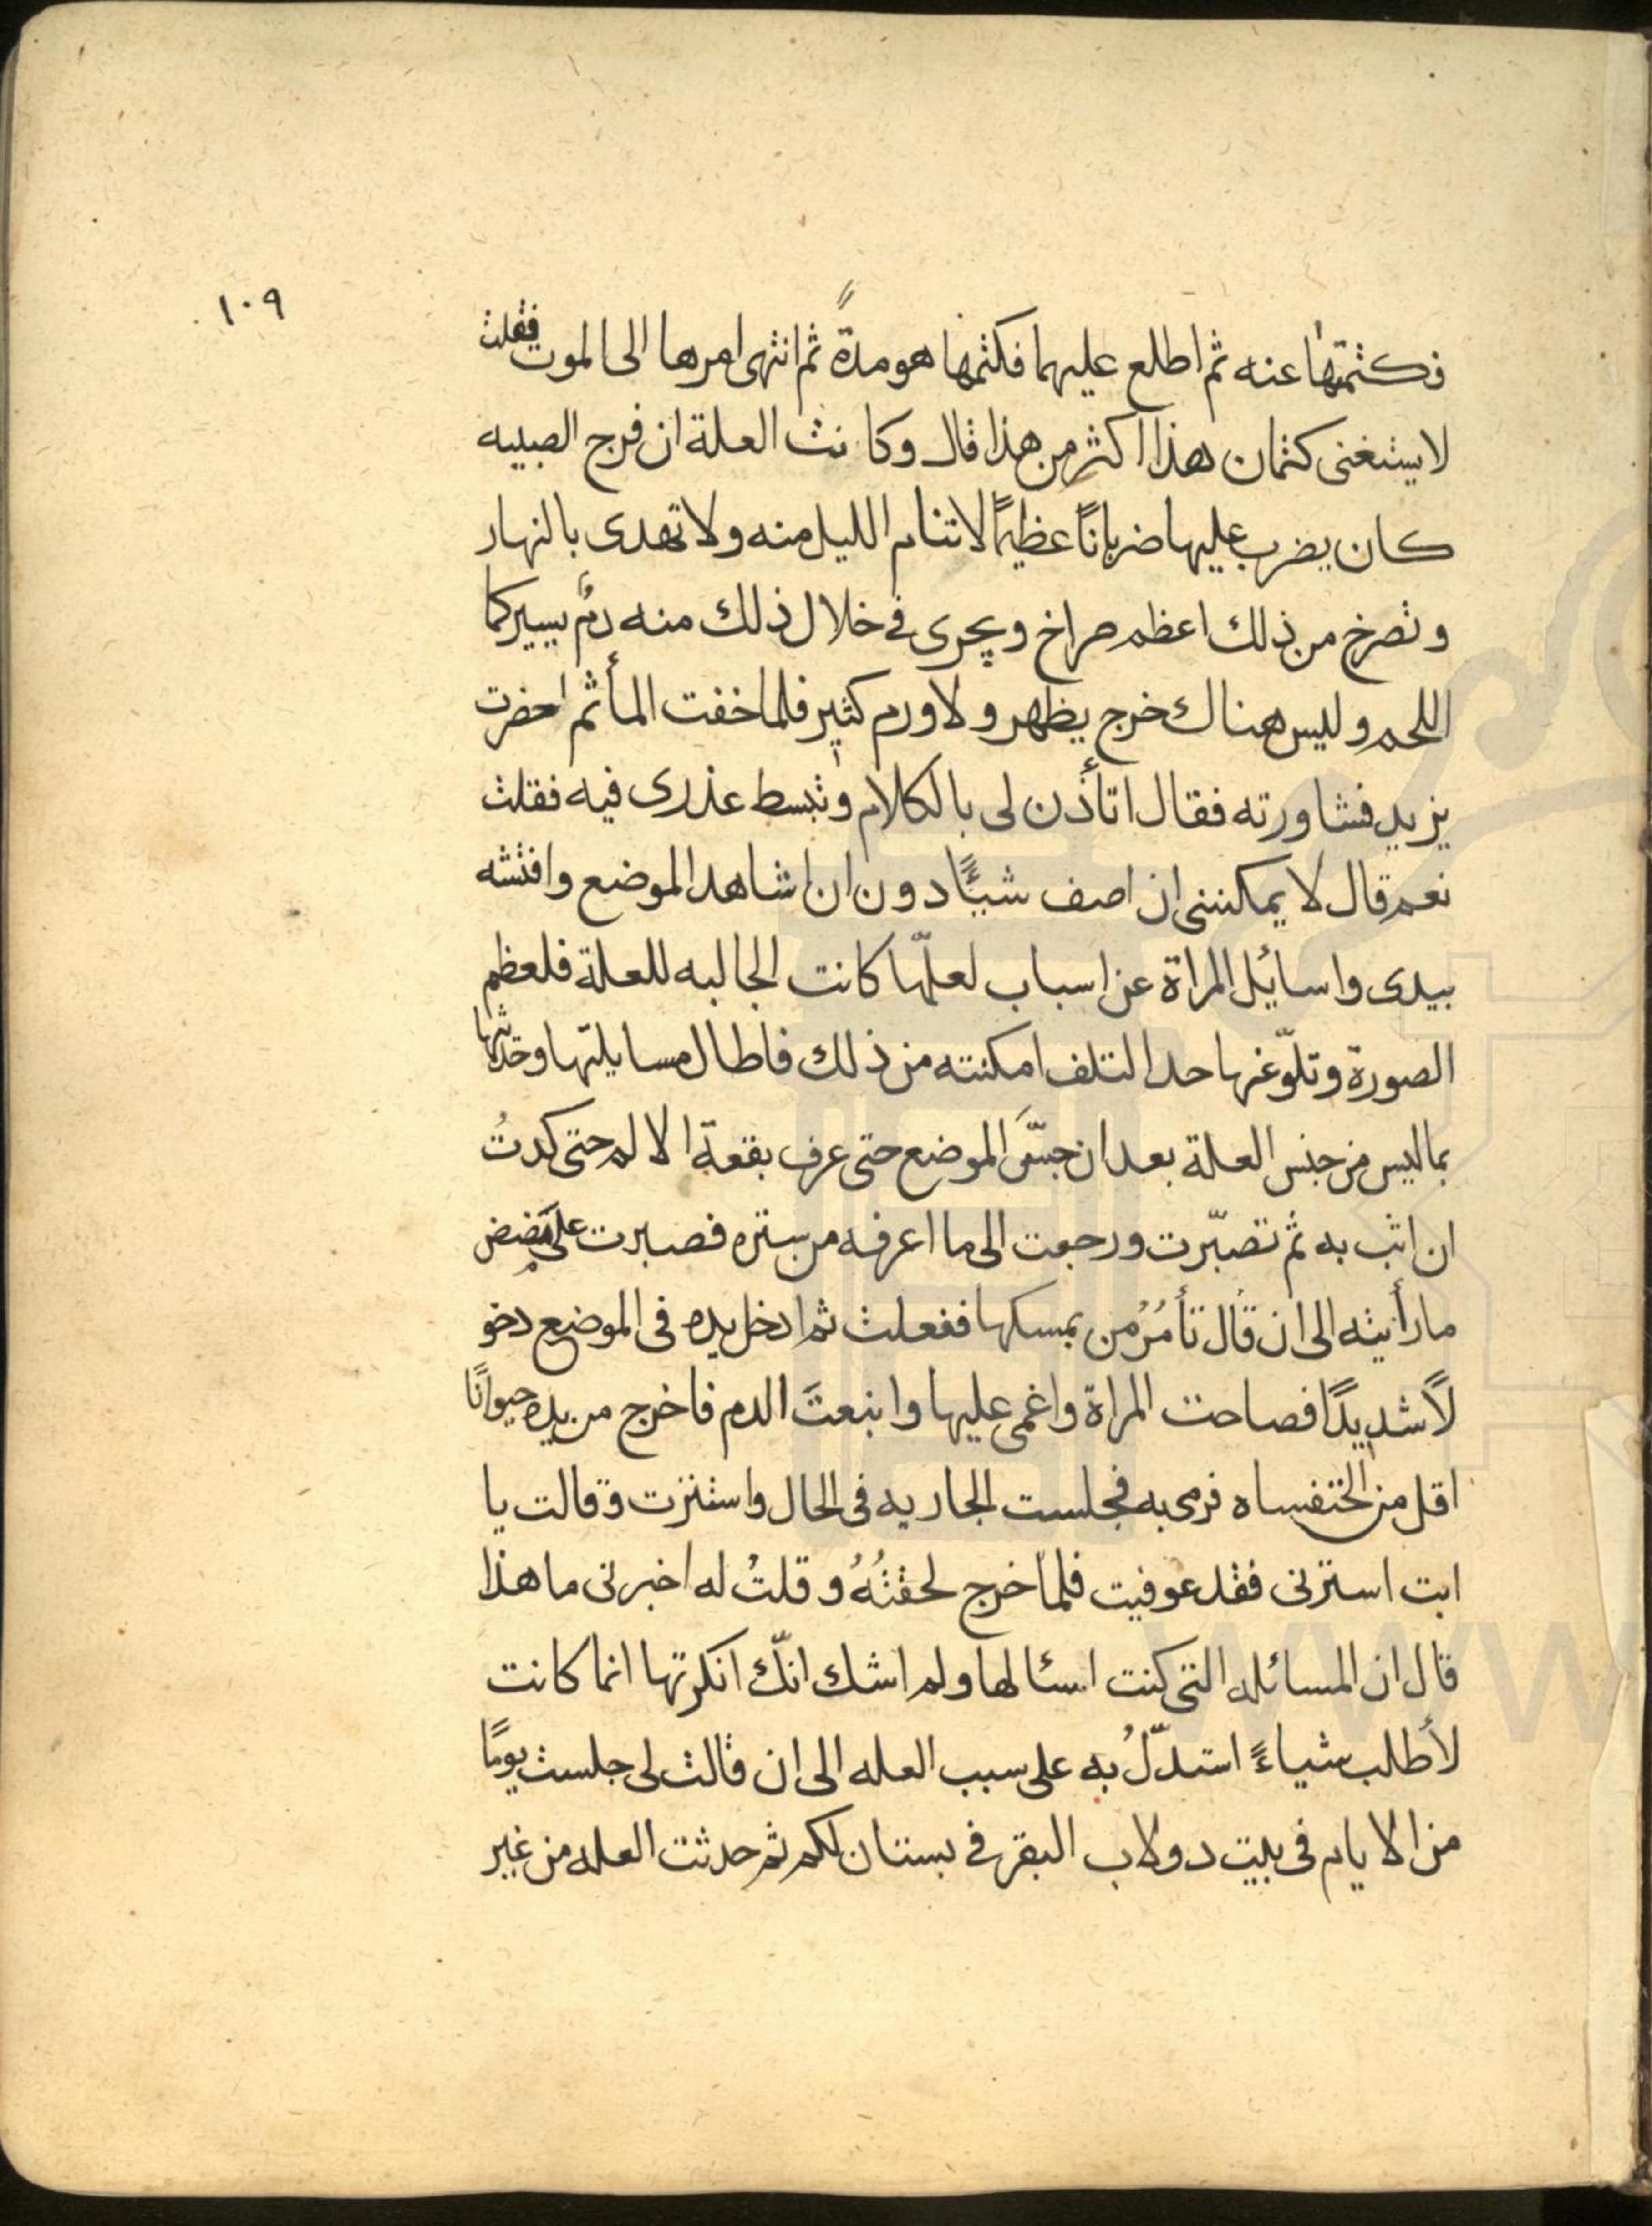 ١٠٩
فكثمتها عنه ثم اطلع عليهما فكثمها هو مدةً ثم انتهى امرها الى الموت فقلت
لا يستغنى كتمان هذا اكثر من هذا قال وكانت العلة ان فرج الصبيه
كان يضرب عليها ضرباناً عظيماً لا تنام الليل منه ولا تهدى بالنهار
وتصرخ من ذلك اعظم صراخ ويجرى في خلال ذلك منه دمٌ يسير كما
اللحم وليس هناك خرج يظهر ولا ورم كثير فلما خفت المأثم احضرت
يزيد فشاورته فقال اتأذن لى بالكلام وتبسط عذرى فيه فقلت
نعم قال لا يمكننى ان اصف شيئاً دون ان اشاهد الموضع وافتشه
بيدى واسائل المراة عن اسباب لعلّها كانت الجالبه للعلة فلعظم
الصورة وتلوّغها حد التلف امكنته من ذلك فاطال مسايلتها وحدثها
بما ليس من جنس العلة بعد ان جسَّ الموضع حتى عرف بقعة الالم حتى كدتُ
ان اثب به ثم تصبّرت ورجعت الى ما اعرفه من ستره فصبرت على مضض
ما رأيته الى ان قال تأمُرُ من يمسكها ففعلت ثم ادخل يده فى الموضع دخو
لاً شديداً فصاحت المراة واغمى عليها وانبعثَ الدم فاخرج من يده حيواناً
اقل من الخنفساه فرمى به فجلست الجاريه فى الحال واستترت وقالت يا
ابت استرنى فقد عوفيت فلما خرج لحقتُهُ وقلتُ له اخبرنى ما هذا
قال ان المسائله التى كنت اسئالها ولم اشك انّك انكرتها انما كانت
لأطلب شياءً استدلّ به على سبب العله الى ان قالت لى جلست يوماً
من الايام فى بيت دولاب البقر في بستان لكم ثم حدثت العله من غير